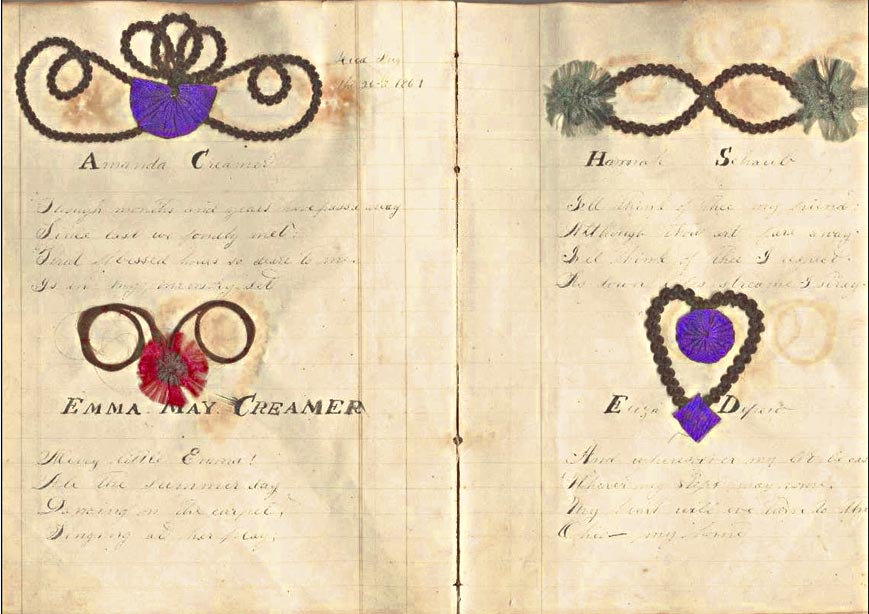 the 26th 1861
Amanda Creamer
Though months and years have passd away
Since last we fondly met
That blessed hours so deare to me
Is in my memory set
EMMA MAY CREAMER
Merry little Emma!
All the summer day
Dancing on the carpet,
Singing at her play,
Hannah Schaub
Ill think of thee my friend
Although thou art fare away
Ill think of thee I
As down streame I stray
Eliza
And wheresoever my lot be cas
my steps may
My heart will
my home